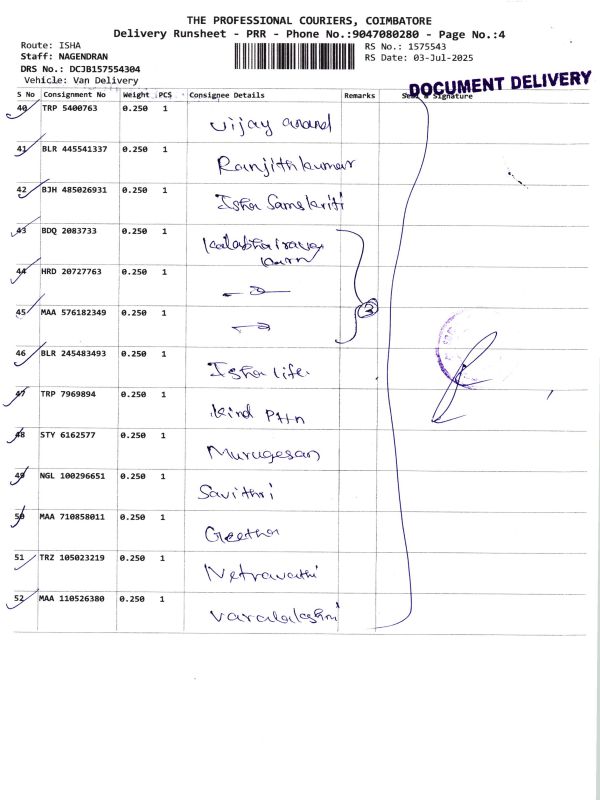 THE PROFESSIONAL COURIERS, COIMBATORE
Delivery Runsheet - PRR - Phone No.:9047080280 - Page No.:4
Route: ISHA
RS No.: 1575543
Staff: NAGENDRAN
RS Date: 03-Jul-2025
DRS No.: DCJB157554304
Vehicle: Van Delivery
DOCUMENT DELIVERY
S No Consignment No Weight PCS Consignee Details Remarks Seal & Signature
40 TRP 5400763 0.250 1 Vijay anand
41 BLR 445541337 0.250 1 Ranjithkumar
42 BJH 485026931 0.250 1 Isha Samskriti
43 BDQ 2083733 0.250 1 Kalabhairava
44 HRD 20727763 0.250 1
45 MAA 576182349 0.250 1
3
46 BLR 245483493 0.250 1 Isha Life
47 TRP 7969894 0.250 1 kind Pttn
48 STY 6162577 0.250 1 Murugesan
49 NGL 100296651 0.250 1 Savithri
50 MAA 710858011 0.250 1 Geetha
51 TRZ 105023219 0.250 1 Netravathi
52 MAA 110526380 0.250 1 Varalakshmi